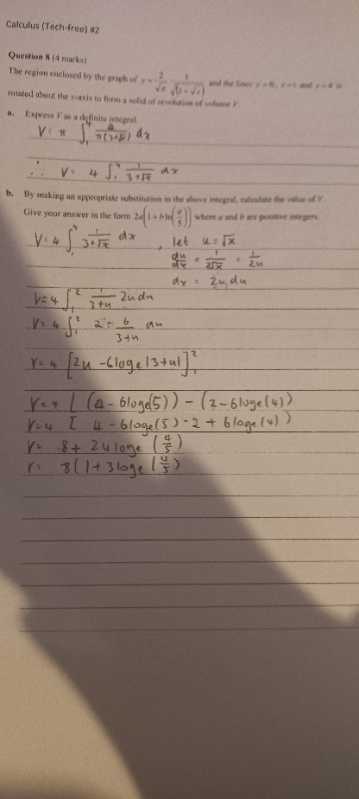 Calculus (Tech-free) #2
Question 8 (4 marks)
The region enclosed by the graph of y = 2/√π 1/√(3+√x) and the lines y = 0, x = 1 and x = 4 is
rotated about the x-axis to form a solid of revolution of volume V.
a. Express V as a definite integral.
V = π ∫₁⁴ 4/π(3+√x) dx
∴ V = 4 ∫₁⁴ 1/3+√x dx
b. By making an appropriate substitution in the above integral, calculate the value of V.
Give your answer in the form 2a(1 + b ln(a/5)) where a and b are positive integers.
V = 4 ∫₁⁴ 1/3+√x dx , let u = √x
du/dx = 1/2√x = 1/2u
dx = 2u du
V = 4 ∫₁² 1/3+u 2u du
V = 4 ∫₁² 2 - 6/3+u du
V = 4 [2u - 6loge|3+u|]₁²
V = 4 [(4 - 6loge(5)) - (2 - 6loge(4))
V = 4 [ 4 - 6loge(5) - 2 + 6loge(4))
V = 8 + 24loge (4/5)
V = 8(1 + 3loge(4/5)